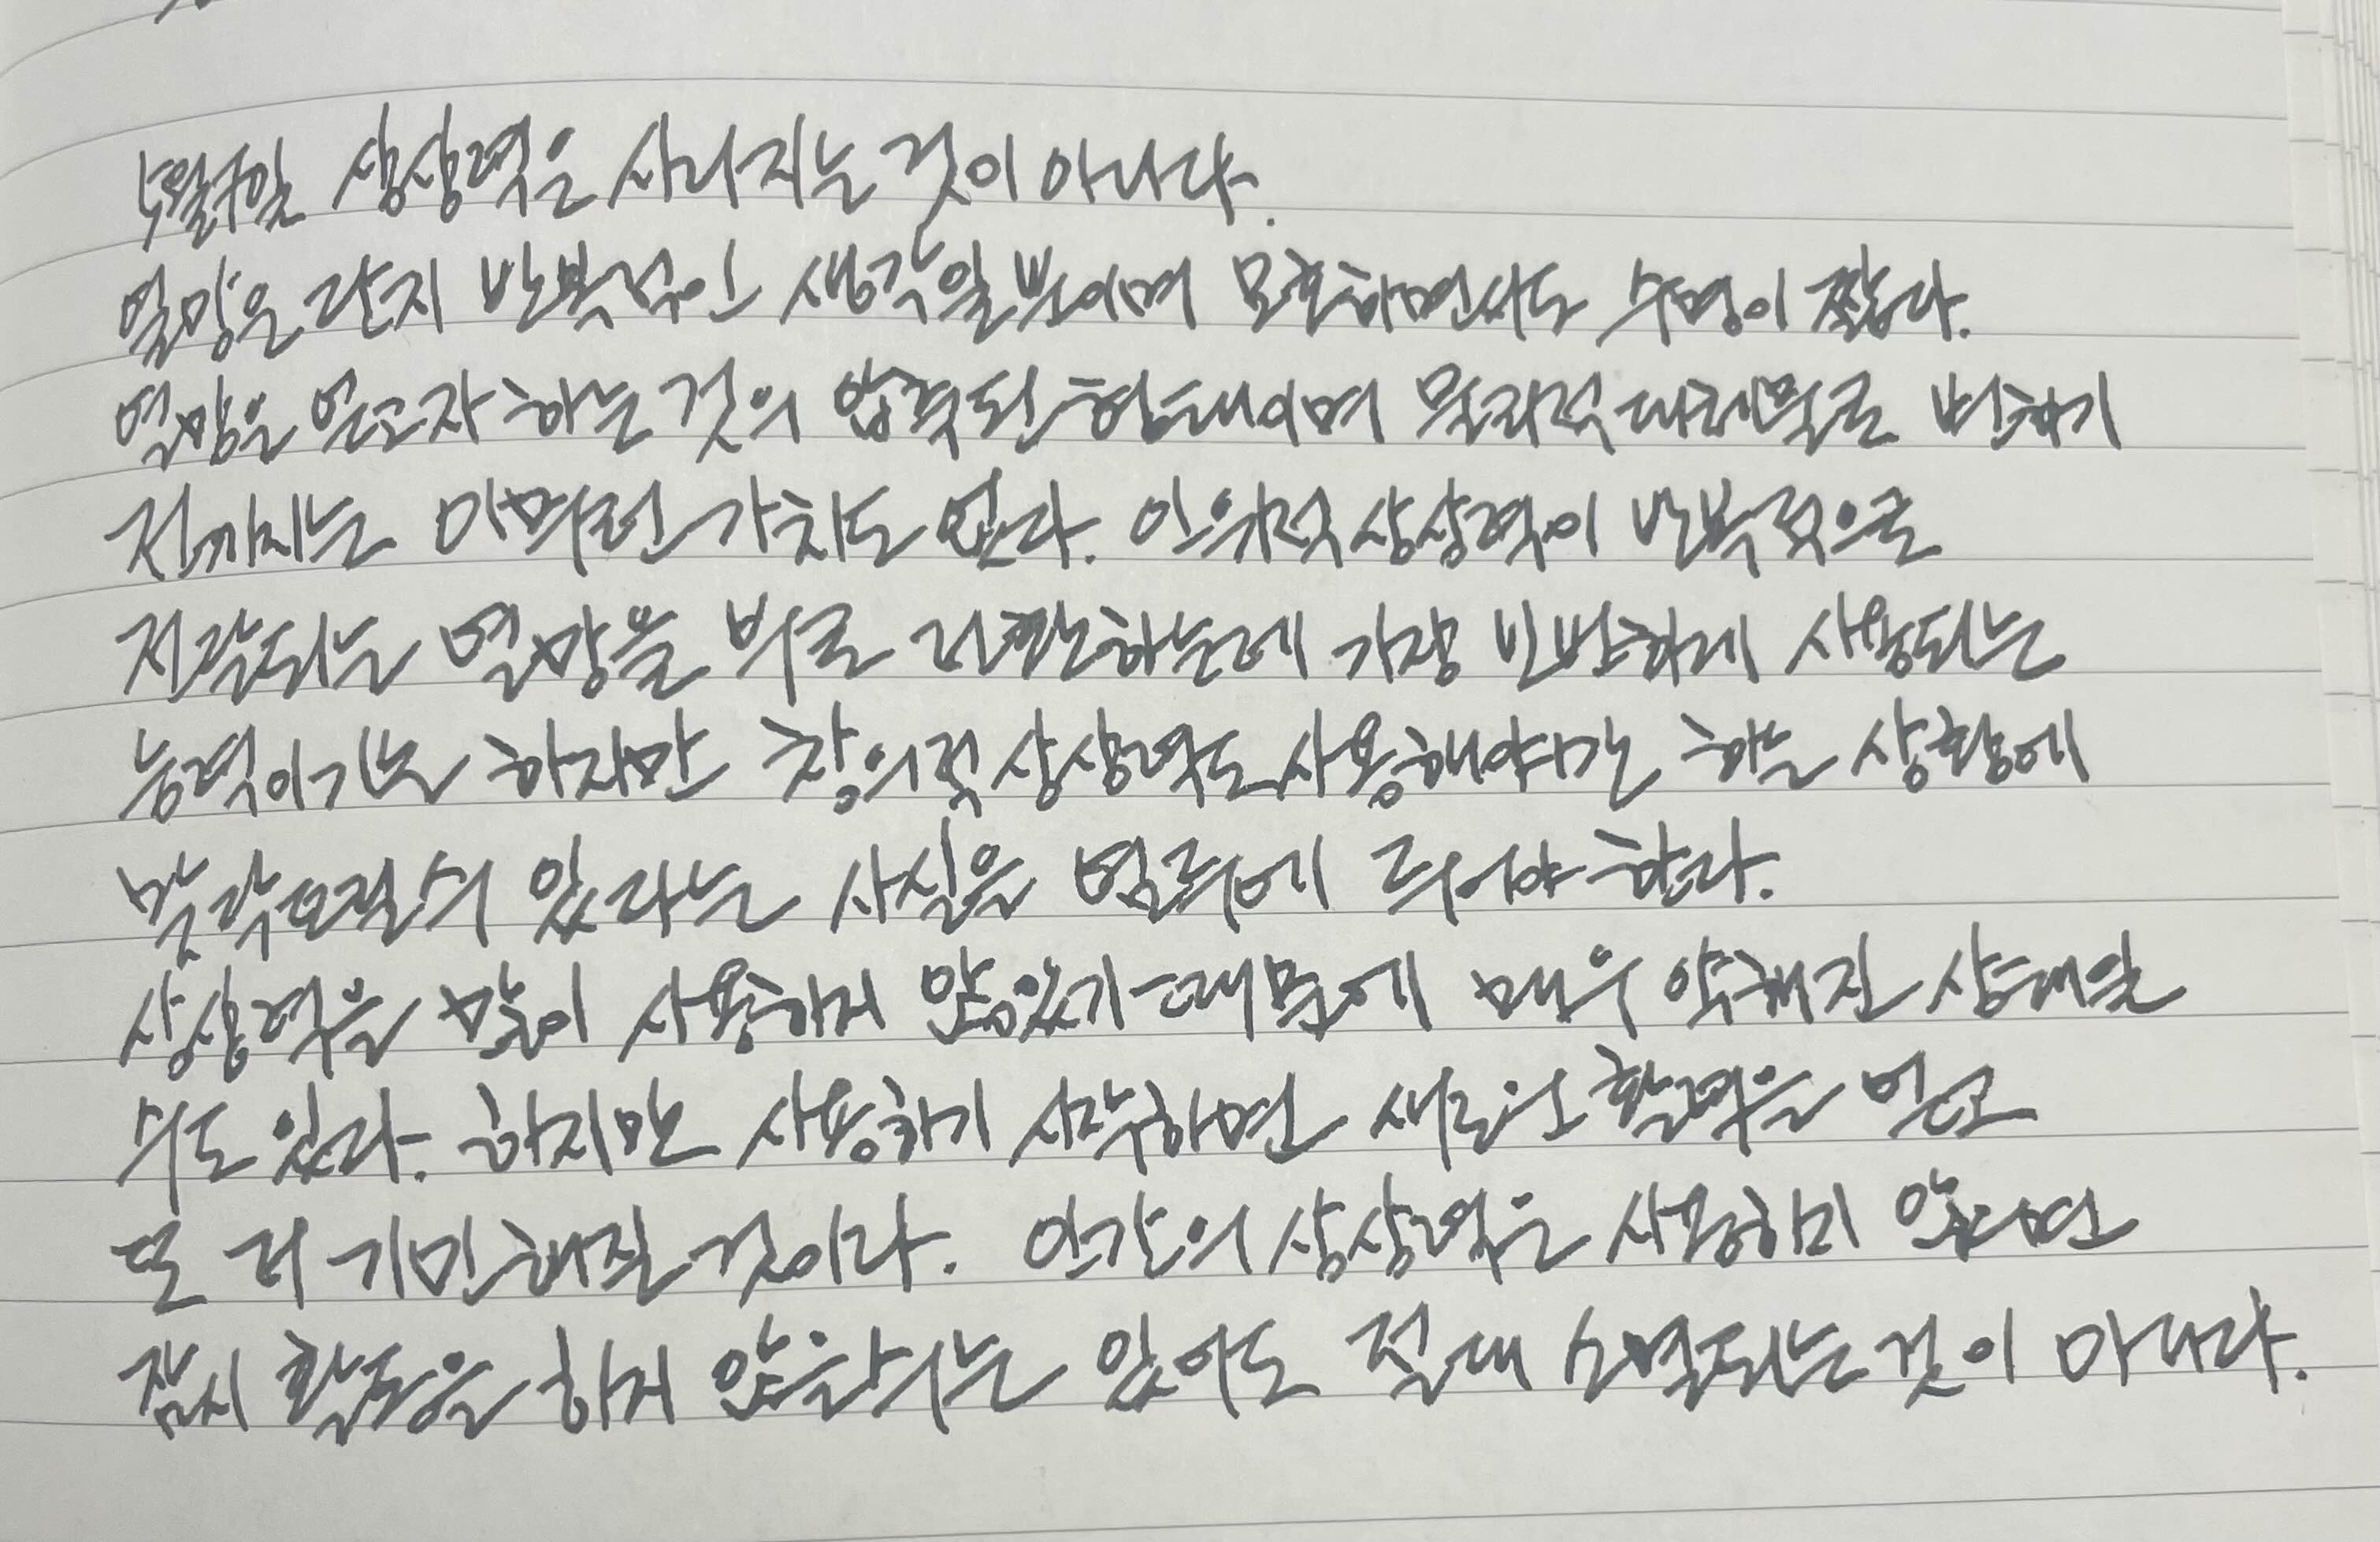 5월9일 상상력은 사라지는 것이 아니다.
열망은 단지 반복적인 생각일뿐이며 모호하면서도 수명이 짧다.
열망은 얻고자 하는 것의 압축된 형태이며 물리적 대응책으로 변하기
전까지는 아무런 가치도 없다. 인위적 상상력이 반복적으로
자각되는 열망을 부로 전환하는데 가장 빈번하게 사용되는
능력이기는 하지만 창의적 상상력도 사용해야만 하는 상황에
맞닥뜨릴수 있다는 사실을 염두에 두어야 한다.
상상력을 많이 사용하지 않았기 때문에 매우 약해진 상태일
수도 있다. 하지만 사용하기 시작하면 새로운 활력을 얻고
또 더 기민해질 것이다. 인간의 상상력은 사용하지 않으면
잠시 활동을 하지 않을수는 있어도 절대 소멸되는 것이 아니다.